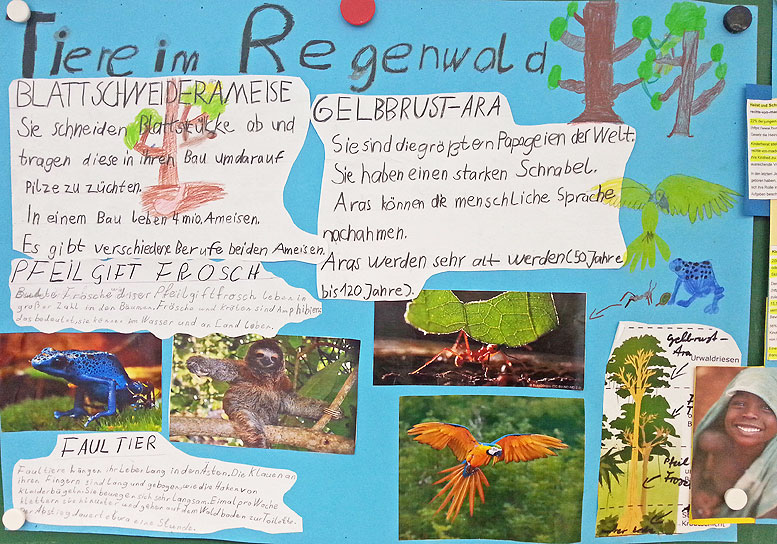 Tiere im Regenwald
BLATTSCHNEIDERAMEISE
Sie schneiden Blattstücke ab und
tragen diese in ihren Bau um darauf
Pilze zu züchten.
In einem Bau leben 4 mio. Ameisen.
Es gibt verschiedene Berufe bei den Ameisen.
GELBBRUST-ARA
Sie sind die größten Papageien der Welt.
Sie haben einen starken Schnabel.
Aras können die menschliche Sprache
nachahmen.
Aras werden sehr alt werden (50 Jahre
bis 120 Jahre).
PFEILGIFT FROSCH
Frösche wie dieser Pfeilgiftfrosch leben in
großer Zahl in den Bäumen. Frösche und Kröten sind Amphibien,
das bedeutet sie können im Wasser und an Land leben.
FAULTIER
Faultiere hängen ihr Leber Lang in den Ästen. Die Klauen an
ihren Fingern sind Lang und gebogen, wie die Haken von
Kleiderbügeln. Sie bewegen sich sehr Langsam. Eimal pro Woche
klettern sie hinunter und gehen auf dem Waldboden zur Toilette.
Der Abstieg dauert etwa eine Stunde.
Gelbbrust-
Ara
Urwaldriesen
Pfeil
Frosch